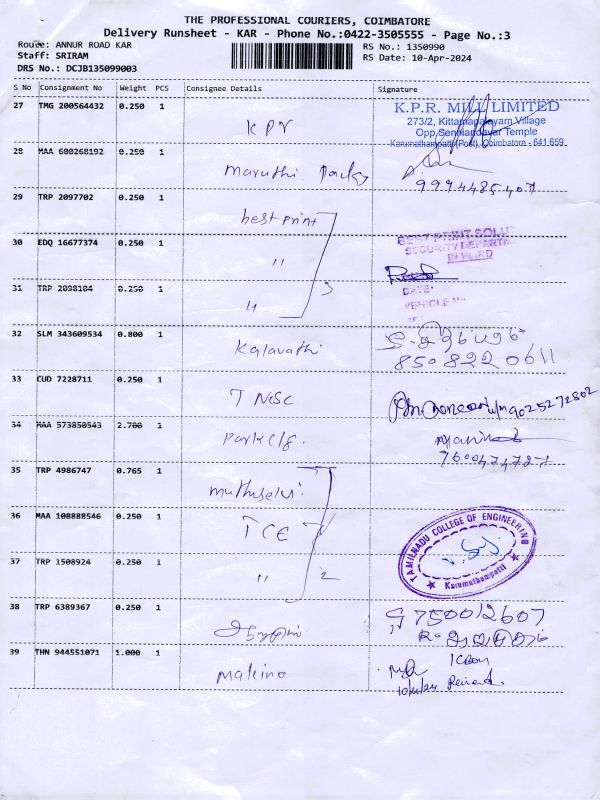 THE PROFESSIONAL COURIERS, COIMBATORE
Delivery Runsheet - KAR - Phone No.:0422-3505555 - Page No.:3
Route: ANNUR ROAD KAR
RS No.: 1350990
Staff: SRIRAM
RS Date: 10-Apr-2024
DRS No.: DCJB135099003
S No Consignment No Weight PCS Consignee Details Signature
27 TMG 200564432 0.250 1
K.P.R. MILL LIMITED
273/2, Kittampalayam Village
Opp. Senniandavar Temple
Karumathampatti (Post), Coimbatore - 641 659
28 MAA 600268192 0.250 1
Maruthi
9994485407
29 TRP 2097702 0.250 1
best print
30 EDQ 16677374 0.250 1
"
BEST PRINT SOLU
SECURITY DEPARTM
INWARD
31 TRP 2098104 0.250 1
"
3
DATE:
VEHICLE
32 SLM 343609534 0.800 1
Kalavathi
850822 0611
33 CUD 7228711 0.250 1
9025272802
34 MAA 573850543 2.700 1
Park clg.
35 TRP 4986747 0.765 1
muthuselvi
36 MAA 108888546 0.250 1
TCE
TAMILNADU COLLEGE OF ENGINEERING
Karumathampatti
37 TRP 1508924 0.250 1
"
2
38 TRP 6389367 0.250 1
9750012607
39 THN 944551071 1.000 1
Makino
10/4/24